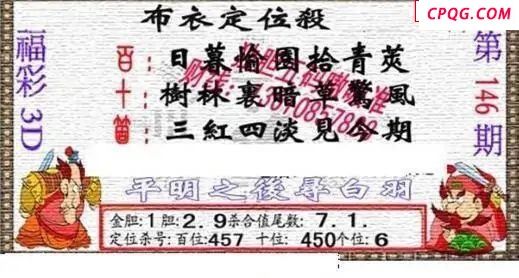 CPQG.COM
布衣定位殺
福彩3D
第146期
百：日暮愉園拾青莢
十：樹林裏暗草驚風
箇：三紅四淡見今期
平明之後尋白羽
金胆:1胆:2.9杀合值尾数:7.1.
定位杀号:百位:457 十位:450个位:6